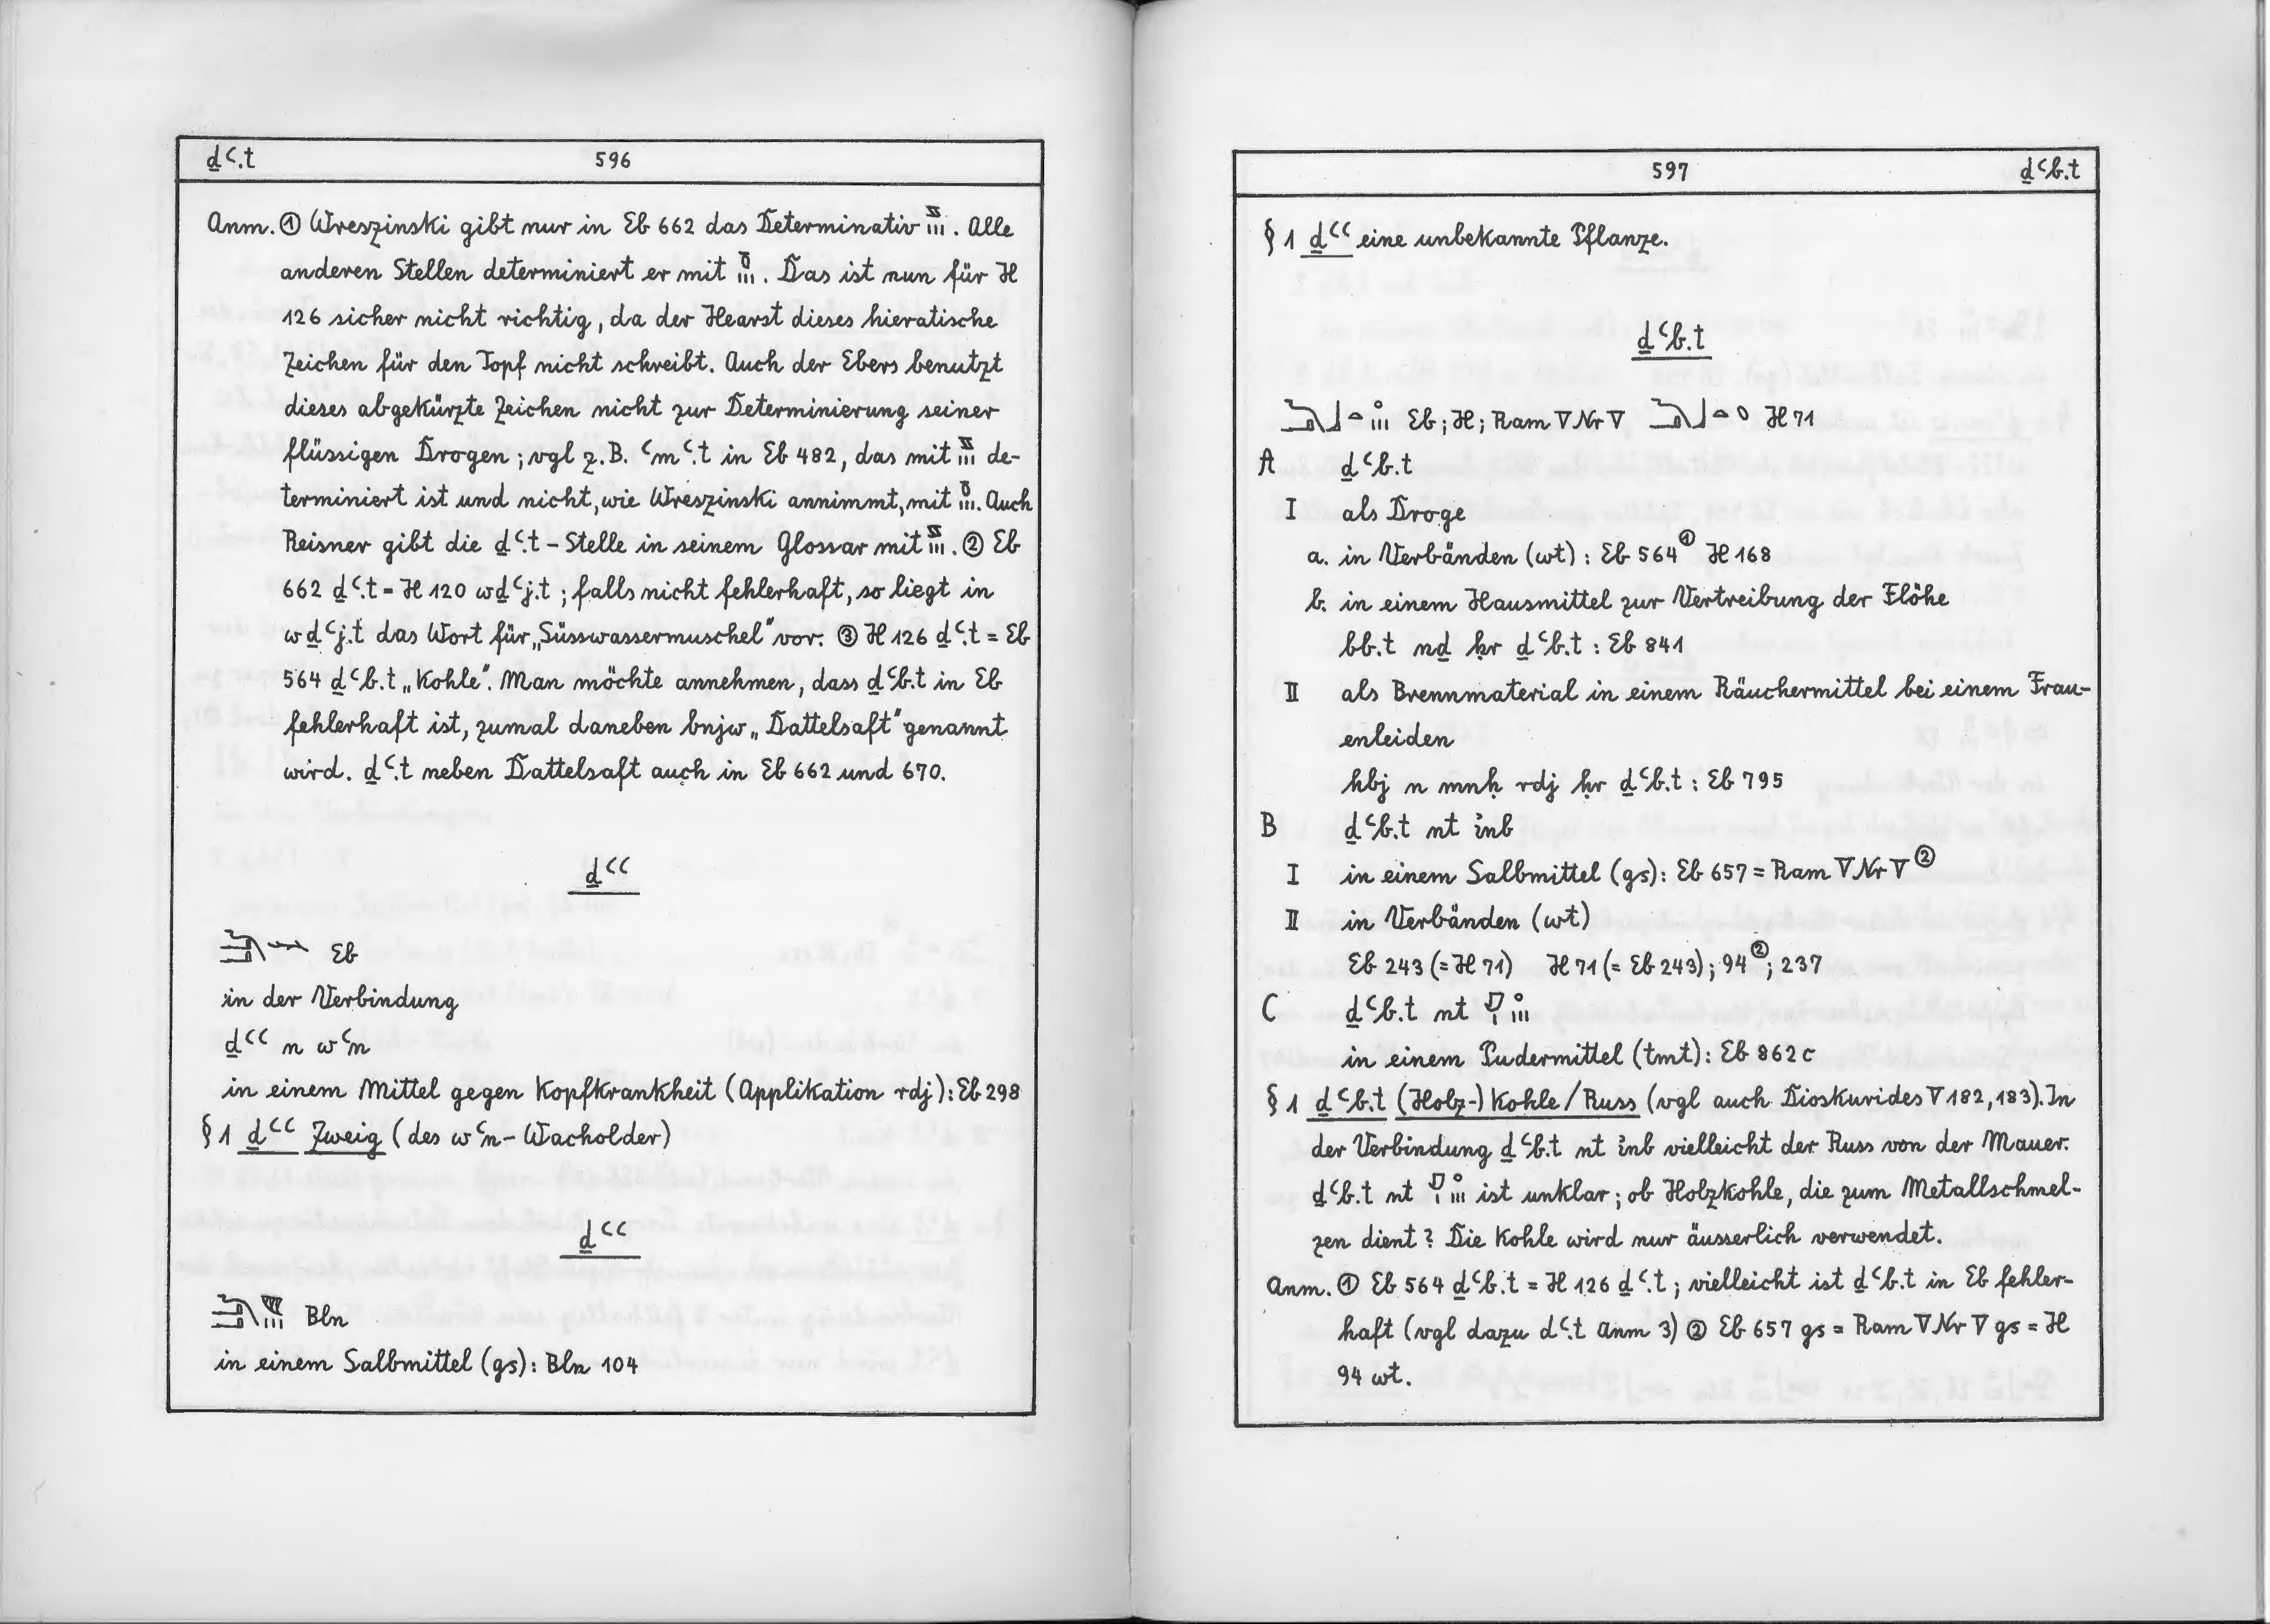 ḏꜥ.t 596
Anm. ① Wreszinski gibt nur in Eb 662 das Determinativ 𓈗. Alle
anderen Stellen determiniert er mit 𓏊𓏥. Das ist nun für H
126 sicher nicht richtig, da der Hearst dieses hieratische
Zeichen für den Topf nicht schreibt. Auch der Ebers benutzt
dieses abgekürzte Zeichen nicht zur Determinierung seiner
flüssigen Drogen; vgl z.B. ꜥmꜥ.t in Eb 482, das mit de-
terminiert ist und nicht, wie Wreszinski annimmt, mit 𓏊𓏥. Auch
Reisner gibt die ḏꜥ.t-Stelle in seinem Glossar mit . ② Eb
662 ḏꜥ.t = H 120 wḏꜥj.t; falls nicht fehlerhaft, so liegt in
wḏꜥj.t das Wort für „Süsswassermuschel" vor. ③ H 126 ḏꜥ.t = Eb
564 ḏꜥb.t „Kohle". Man möchte annehmen, dass ḏꜥb.t in Eb
fehlerhaft ist, zumal daneben bnjw „Dattelsaft" genannt
wird. ḏꜥ.t neben Dattelsaft auch in Eb 662 und 670.
ḏꜥꜥ
Eb
in der Verbindung
ḏꜥꜥ n wꜥn
in einem Mittel gegen Kopfkrankheit (Applikation rdj): Eb 298
§ 1 ḏꜥꜥ Zweig (des wꜥn-Wacholder)
ḏꜥꜥ
Bln
in einem Salbmittel (gs): Bln 104
597 ḏꜥb.t
§ 1 ḏꜥꜥ eine unbekannte Pflanze.
ḏꜥb.t
Eb; H; Ram V Nr V H 71
A ḏꜥb.t
I als Droge
a. in Verbänden (wt): Eb 564① H 168
b. in einem Hausmittel zur Vertreibung der Flöhe
bb.t nḏ ḥr ḏꜥb.t: Eb 841
II als Brennmaterial in einem Räuchermittel bei einem Frau-
enleiden
hbj n mnḥ rdj ḥr ḏꜥb.t: Eb 795
B ḏꜥb.t nt inb
I in einem Salbmittel (gs): Eb 657 = Ram V Nr V②
II in Verbänden (wt)
Eb 243 (= H 71) H 71 (= Eb 243); 94②; 237
C ḏꜥb.t nt
in einem Pudermittel (tmt): Eb 862 c
§ 1 ḏꜥb.t (Holz-) Kohle / Russ (vgl auch Dioskurides V 182, 183). In
der Verbindung ḏꜥb.t nt inb vielleicht der Russ von der Mauer.
ḏꜥb.t nt ist unklar; ob Holzkohle, die zum Metallschmel-
zen dient? Die Kohle wird nur äusserlich verwendet.
Anm. ① Eb 564 ḏꜥb.t = H 126 ḏꜥ.t; vielleicht ist ḏꜥb.t in Eb fehler-
haft (vgl dazu dꜥ.t Anm 3) ② Eb 657 gs = Ram V Nr V gs = H
94 wt.